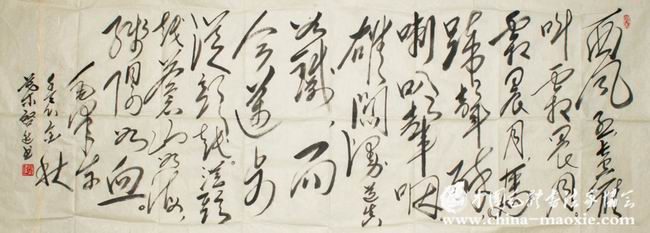 西风烈长空雁
叫霜晨月
霜晨月马
蹄声碎
喇叭声咽
雄关漫道真
如铁而
今迈步
从头越。从头
越苍山如海
残阳如血。
毛泽东
金秋
书
中国毛体书法家协会
www.china-maoxie.com